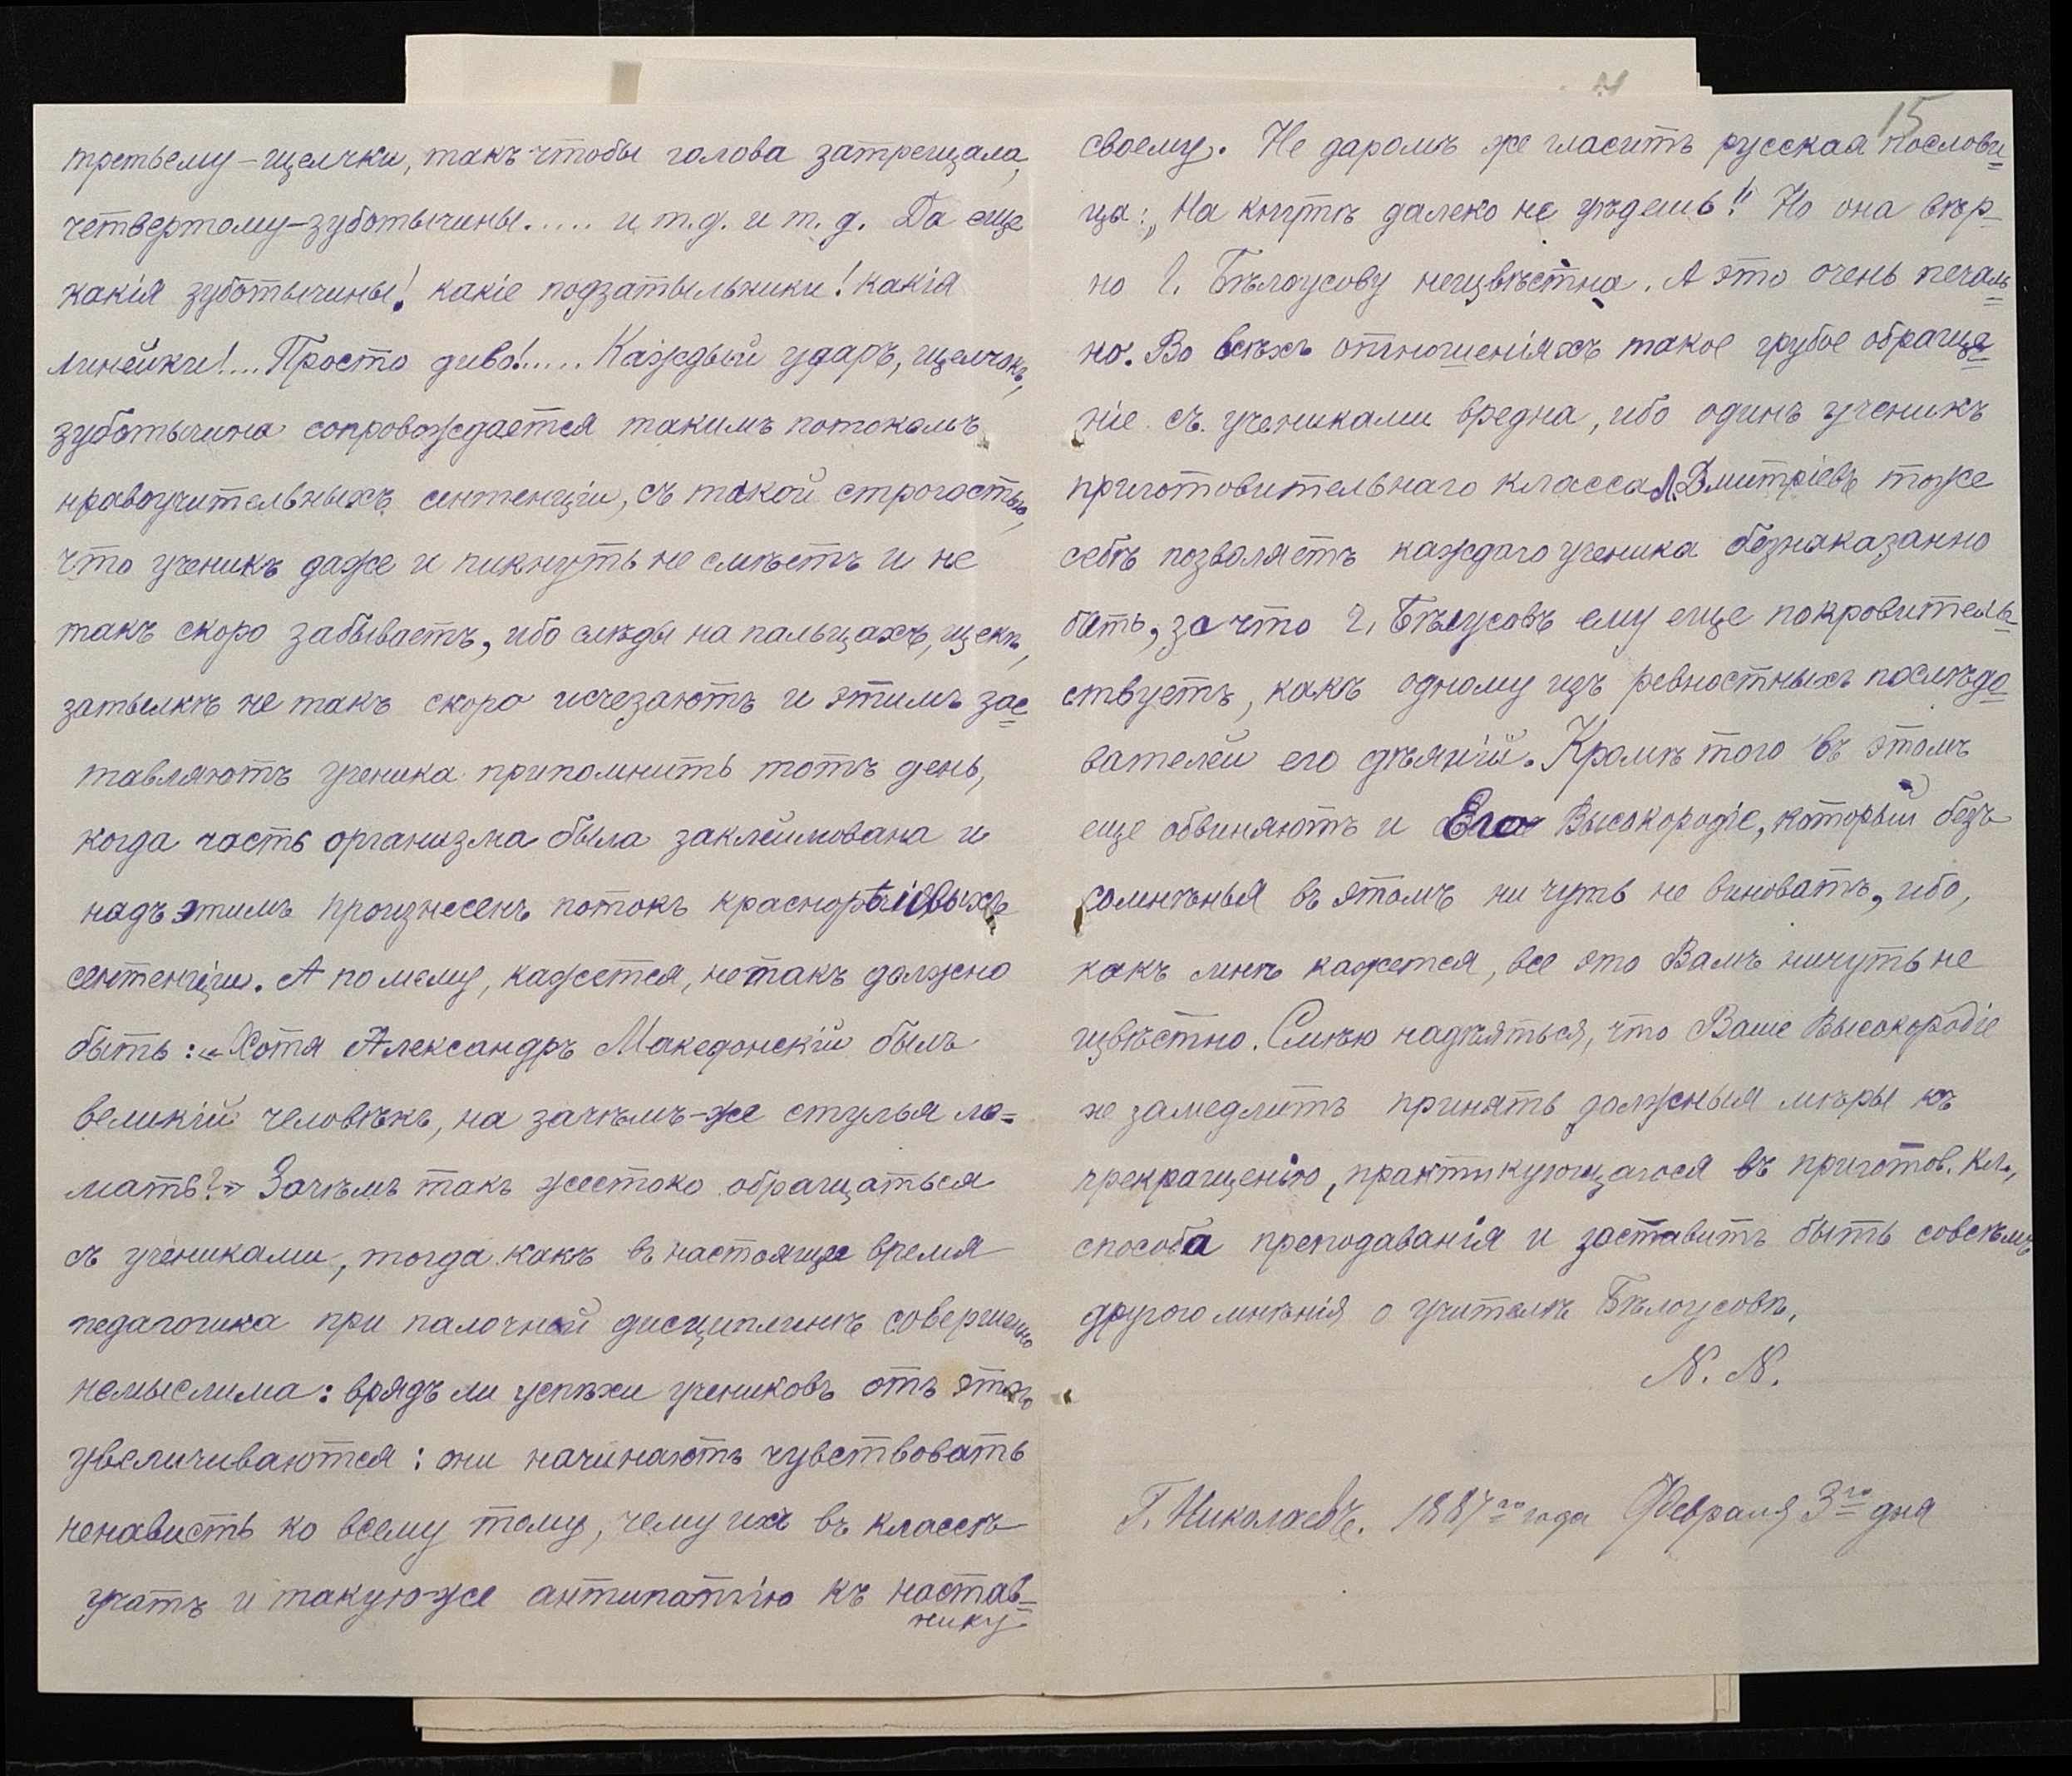 третьему – щелчки, такъ чтобы голова затрещала,
четвертому – зуботычины..... и т.д. и т. д. Да еще
какія зуботычины! какіе подзатыльники! какія
линейки!... Просто диво!..... Каждый ударъ, щелчокъ,
зуботычина сопровождается такимъ потокомъ
нравоучительныхъ сентенціи, съ такой строгостью,
что ученикъ даже и пикнуть не смѣетъ и не
такъ скоро забываетъ, ибо слѣды на пальцахъ, щекѣ,
затылкѣ не такъ скоро исчезаютъ и этимъ зас=
тавляютъ ученика припомнить тотъ день,
когда часть организма была заклеймована и
надъ этимъ произнесенъ потокъ краснорѣчивыхъ
сентенціи. А по моему, кажется, не такъ должно
быть: „Хотя Александръ Македонскій былъ
великій человѣкъ, на зачѣмъ-же стулья ло=
мать?" Зачѣмъ такъ жестоко обращаться
съ учениками, тогда какъ въ настоящее время
педагогика при палочной дисциплинѣ совершенно
немыслима: врядъ ли успѣхи учениковъ отъ этого
увеличиваются: они начинаютъ чувствовать
ненависть ко всему тому, чему ихъ въ классѣ
учатъ и такую-же антипатію къ настав=
нику
15
своему. Не даромъ же гласитъ русская послови=
ца: „На кнутѣ далеко не уѣдешь"! Но она вѣр-
но г. Бѣлоусову неизвѣстна. А это очень печаль=
но. Во всѣхъ отношеніяхъ такое грубое обраще=
ніе съ учениками вредна, ибо одинъ ученикъ
приготовительнаго класса Л. Дмитріевъ тоже
себѣ позволяетъ каждаго ученика безнаказанно
бить, за что г. Бѣлусовъ ему еще покровитель=
ствуетъ, какъ одному изъ ревностныхъ послѣдо=
вателей его дѣяній. Кромѣ того въ этомъ
еще обвиняютъ и Его Высокородіе, который безъ
сомнѣнья въ этомъ ни чуть не виноватъ, ибо,
какъ мнѣ кажется, все это Вамъ ничуть не
извѣстно. Смѣю надѣяться, что Ваше Высокородіе
не замедлитъ принять должныя мѣры къ
прекращенію, практикующагося въ приготов. кл.,
способа преподаванія и заставитъ быть совсѣмъ
другого мнѣнія о учителѣ Бѣлоусовѣ.
N. N.
Г. Николаевъ. 1887го года Февраля 3го дня